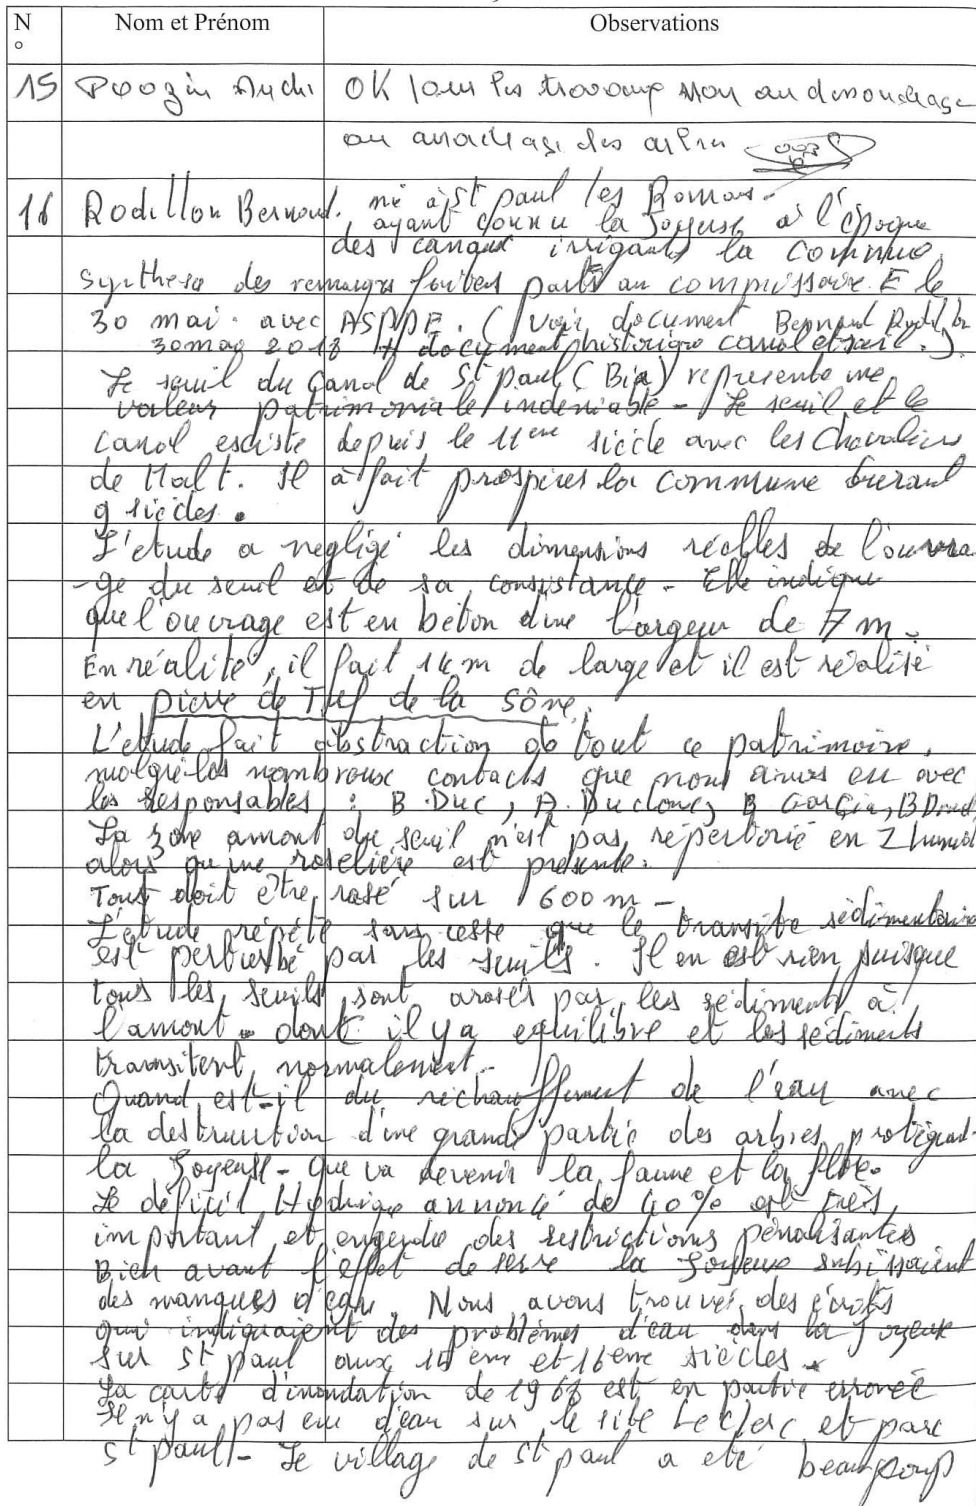 N° Nom et Prénom Observations
15 OK pour les travaux non au dessouchage
au arrachage des arbres
16 Rodillon Bernard. né à St paul les Romans -
ayant connu la Joyeuse à l'époque
des canaux irrigants la commune
Synthese des remarques faites par au commissaire E le
30 mai. avec ASPPE. (Voir document Bernard Rodillon
30 mai 2018 + document historique canal et seuil.).
Le seuil du Canal de St Paul (Bia) represente une
valeur patrimoniale indeniable - Le seuil et le
canal esciste depuis le 11eme siècle avec les Chevaliers
de Malt. Il à fait prospères la commune durant
9 siècles.
L'etude a negligé les dimensions réelles de l'ouvra
-ge du seuil et de sa consistance - Elle indique
que l'ouvrage est en béton d'une largeur de 7 m.
En réalité, il fait 14 m de large et il est réalisé
en pierre de Tuf de la Sône.
L'etude fait abstraction de tout ce patrimoine,
malgré les nombreux contacts que nous avons eu avec
les responsables : B. Duc, A. Duclone, B Garcia, B
La zone amont du seuil n'est pas répertorié en Z humide
alors qu'une roselière est présente.
Tout doit être rasé sur 600 m -
L'étude répète sans cesse que le transite sédimentaire
est perturbé par les seuils. Il en est rien puisque
tous les seuils sont arasés par les sédiments à
l'amont - dont il y a equilibre et les sédiments
transitent normalement.
Quand est-il du réchauffement de l'eau avec
la destruction d'une grande partie des arbres protégeant
la Joyeuse - que va devenir la faune et la flore.
Le déficit Hydrique annoncé de 40 % est très
important et engendre des restrictions pénalisantes
Bien avant l'effet de serre la Joyeuse subissaient
des manques d'eau. Nous avons trouvés des écrits
qui indiquaient des problèmes d'eau dans la Joyeuse
sur St paul aux 15 eme et 16eme siècles.
La carte d'inondation de 1968 est en partie erronée
Il n'y a pas eu d'eau sur le site Leclerc et parc
St paul - Le village de St paul a été beaucoup